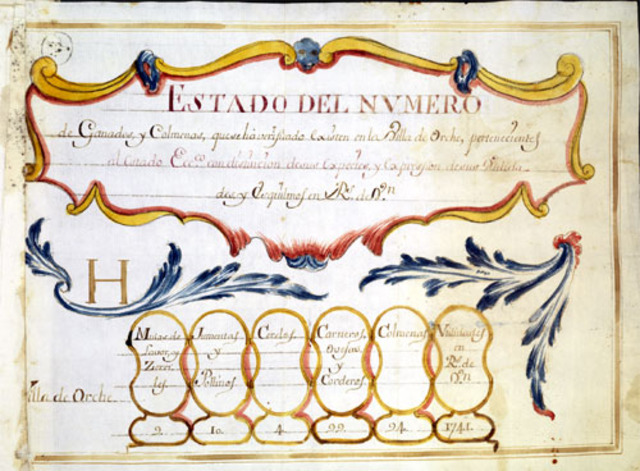 ESTADO DEL NVMERO
de Ganados, y Colmenas, que se hà verificado Existen en la Villa de Orche, pertenecientes
al estado Ecco. con distincion de sus especies, y Expresion de sus Utilida-
des y Esquilmos en Rs. de Vn
H
Mulas de Jumentas Cerdos Carneros Colmenas Utilidades
Lavor, y y Ovejas en
Zerri- Pollinos y Rs. de
les Corderos Vn
Villa de Orche
2. 10. 4. 22. 24. 1741.